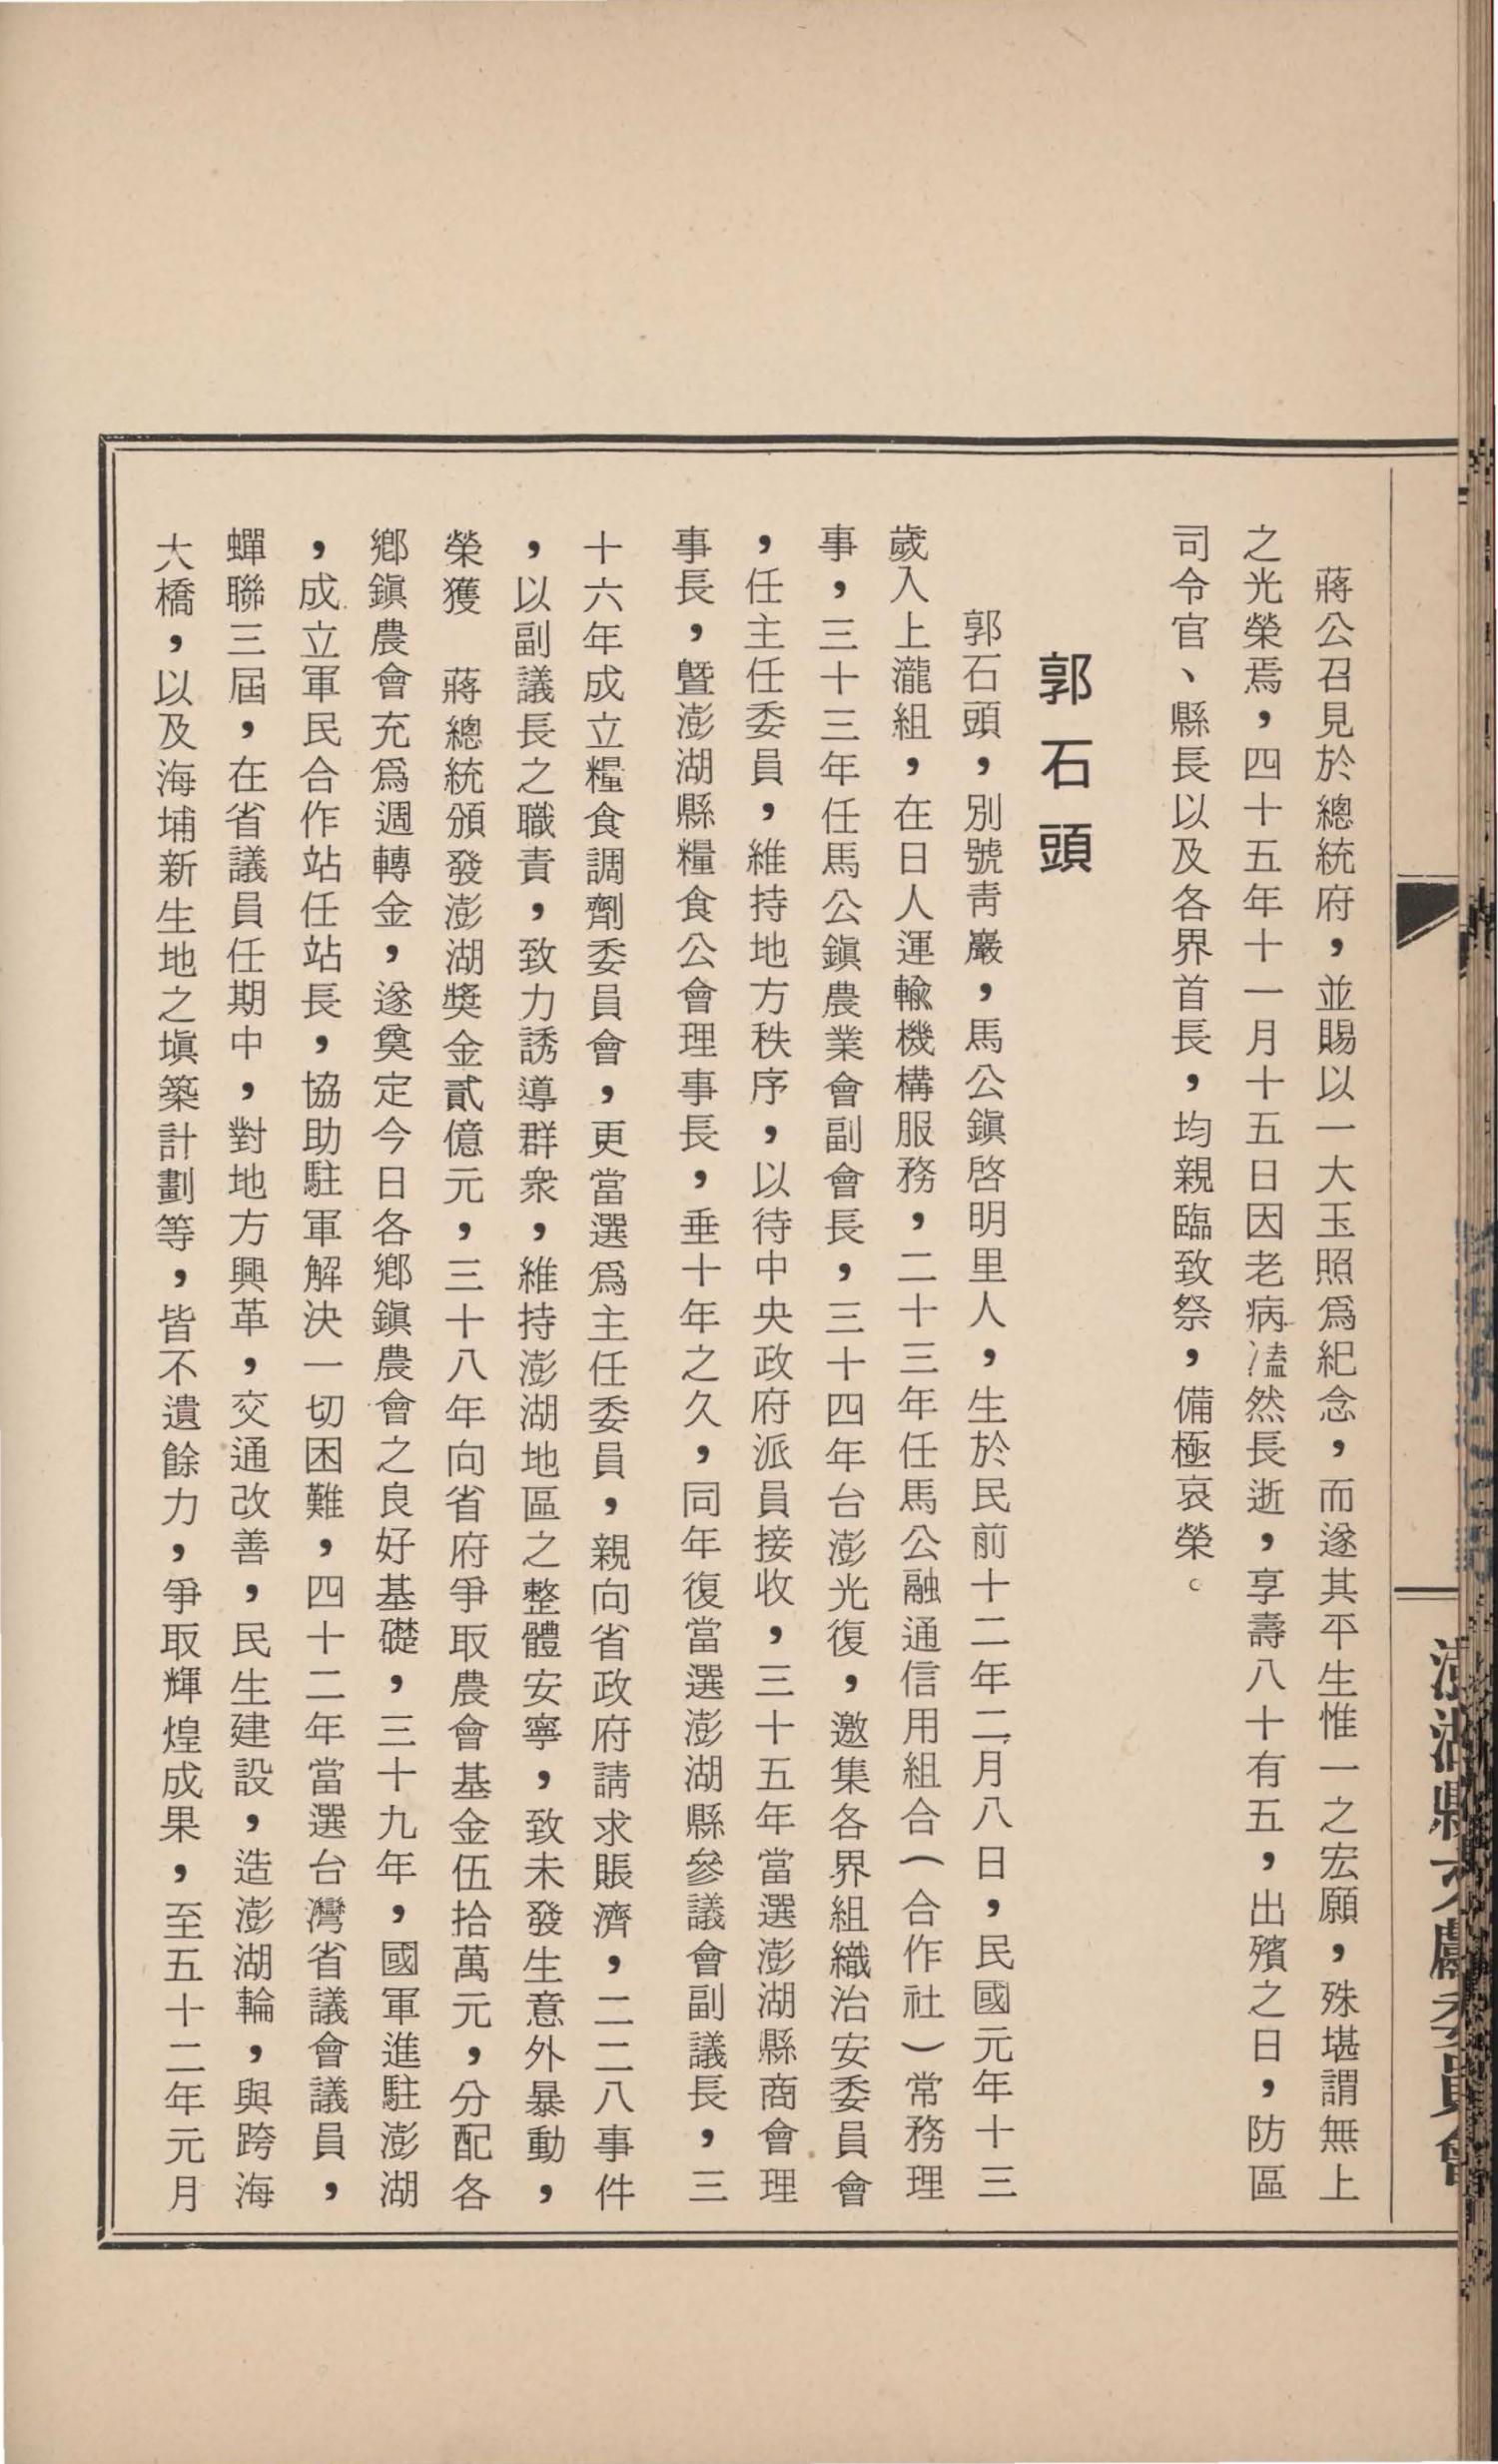 蔣公召見於總統府，並賜以一大玉照爲紀念，而遂其平生惟一之宏願，殊堪謂無上
之光榮焉，四十五年十一月十五日因老病溘然長逝，享壽八十有五，出殯之日，防區
司令官、縣長以及各界首長，均親臨致祭，備極哀榮。
郭石頭
郭石頭，別號靑巖，馬公鎭啓明里人，生於民前十二年二月八日，民國元年十三
歲入上瀧組，在日人運輸機構服務，二十三年任馬公融通信用組合（合作社）常務理
事，三十三年任馬公鎭農業會副會長，三十四年台澎光復，邀集各界組織治安委員會
，任主任委員，維持地方秩序，以待中央政府派員接收，三十五年當選澎湖縣商會理
事長，曁澎湖縣糧食公會理事長，垂十年之久，同年復當選澎湖縣參議會副議長，三
十六年成立糧食調劑委員會，更當選爲主任委員，親向省政府請求賬濟，二二八事件
，以副議長之職責，致力誘導群衆，維持澎湖地區之整體安寧，致未發生意外暴動，
榮獲　蔣總統頒發澎湖獎金貳億元，三十八年向省府爭取農會基金伍拾萬元，分配各
鄕鎭農會充爲週轉金，遂奠定今日各鄕鎭農會之良好基礎，三十九年，國軍進駐澎湖
，成立軍民合作站任站長，協助駐軍解決一切困難，四十二年當選台灣省議會議員，
蟬聯三屆，在省議員任期中，對地方興革，交通改善，民生建設，造澎湖輪，與跨海
大橋，以及海埔新生地之塡築計劃等，皆不遺餘力，爭取輝煌成果，至五十二年元月
澎湖縣文獻委員會